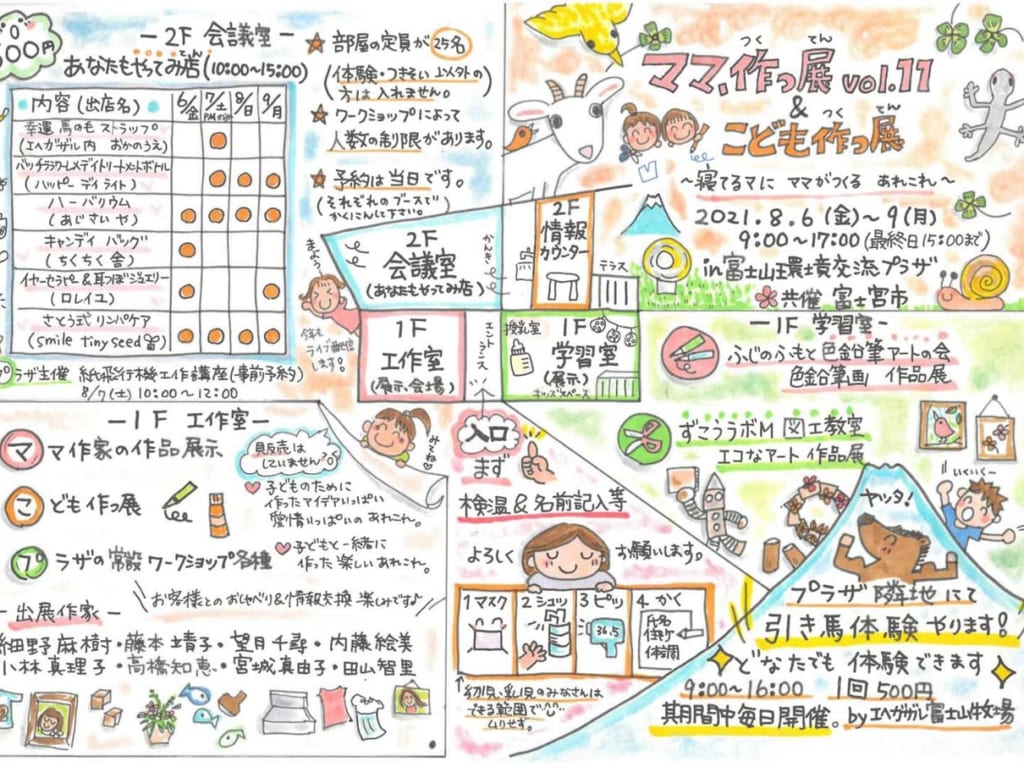 500円
－2F 会議室－
あなたもやってみ店(10:00～15:00)
てん
内容(出店名)
6/金
7/土
PMのみ
8/日
9/月
幸運 馬の毛 ストラップ
(エヘガザル内 おかのうえ)
(ハッピー デイ ライト)
ハーバリウム
(あじさいや)
キャンディ バッグ
(ちくちく舎)
イヤーセラピー&耳つぼジュエリー
(ロレイユ)
さとう式 リンパケア
(smile tiny seed)
プラザ主催 紙飛行機工作講座(事前予約)
8/7(土) 10:00～12:00
★ 部屋の定員が 25名
(体験・つきそい 以外の
方は 入れません。)
★ ワークショップによって
人数の制限があります。
★ 予約は当日です。
(それぞれのブースで
かくにん下さい。)
つく てん
ママ,作っ展 vol.11
&
つく てん
こども作っ展
～寝てるマに ママがつくる あれこれ～
2021.8.6(金)～9(月)
9:00～17:00(最終日15:00まで)
in富士山環境交流プラザ
共催 富士宮市
2F
会議室
(あなたもやってみ店)
2F
情報
カウンター
テラス
まよう!
今年も
ライブ配信
します!
1F
工作室
(展示会場)
エントランス
授乳室
1F
学習室
(展示)
キッズスペース
－1F 学習室－
ふじのふもと色鉛筆アートの会
色鉛筆画 作品展
ずこうラボM 図工教室
エコなアート 作品展
－1F 工作室－
ママ作家の作品展示
こども作っ展
プラザの常設ワークショップ各種
販売は
していません。
みてね
♥子どものために
作ったアイデアいっぱい
愛情いっぱいの あれこれ。
♥子どもと一緒に
作った 楽しいあれこれ。
お客様とのおしゃべり&情報交換 楽しみです♪
－出展作家－
細野麻樹・藤本靖子・望月千尋・内藤絵美
小林真理子・高橋知恵・宮城真由子・田山智里
入口
まず
検温&名前記入等
よろしく お願いします。
1 マスク
2 シュッ
3 ピッ
36.5
4. かく
氏名
住所
体調
↑幼児、乳児のみなさんは
できる範囲で
ムリせず。
いくいくー
ヤッタ!
プラザ隣地にて
引き馬体験やります!
どなたでも 体験できます
9:00～16:00 1回500円
期間中毎日開催。by エヘガザル富士山牧場